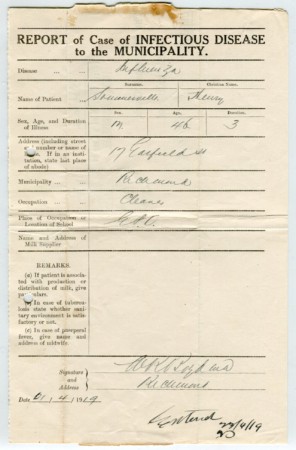 REPORT of Case of INFECTIOUS DISEASE
to the MUNICIPALITY.
Disease ... ... Influenza
Surname. Christian Name.
Name of Patient ... Sommerville Henry
Sex. Age. Duration.
Sex, Age, and Duration of Illness ... M 46 3
Address (including street
and number or name of
house. If in an insti-
tution, state last place
of abode) ... 17 Garfield St
Municipality ... Richmond
Occupation ... Cleaner
Place of Occupation or
Location of School G.P.O.
Name and Address of
Milk Supplier
REMARKS.
(a) If patient is associ-
ated with production or
distribution of milk, give
particulars.
(b) In case of tubercu-
losis state whether sani-
tary environment is satis-
factory or not.
(c) In case of puerperal
fever, give name and
address of midwife.
Signature
and
Address
Richmond
Date 01/4/1919
Entered 22/4/19